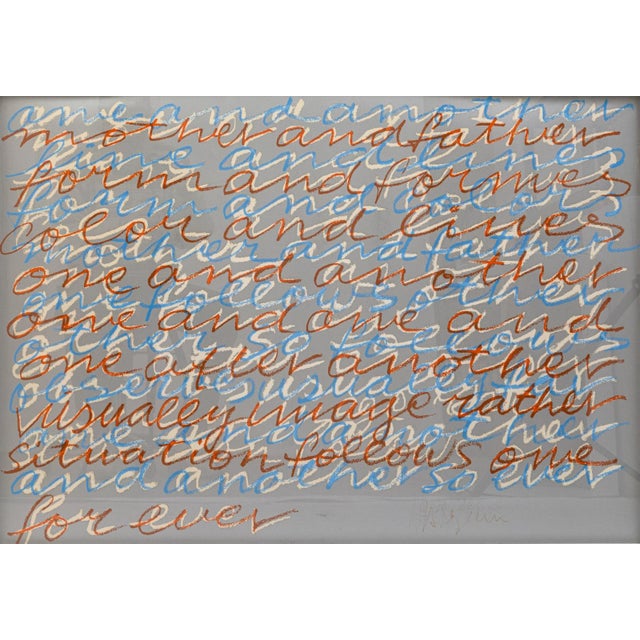 one and another
mother and father
line and lines
form and formes
form and colors
color and lines
mother and father
one and another
one follows other
one and one and
other so follows
one after another
observe usually
usually image rather
one and another
situation follows one
and another so ever
for ever